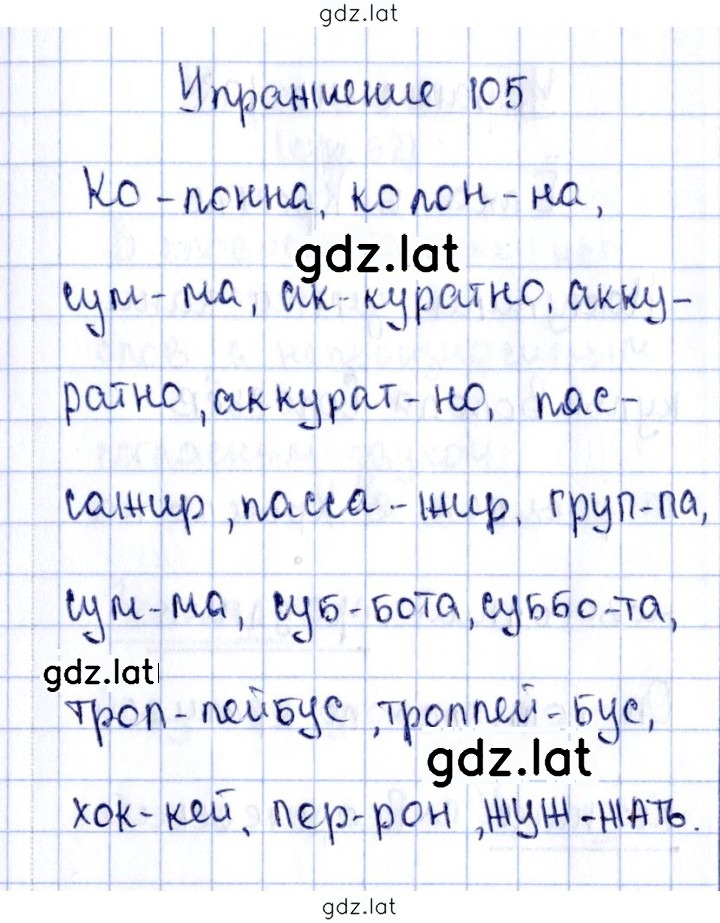 gdz.lat
Упражнение 105
Ко-лонна, колон-на,
gdz.lat
сум-ма, ак-куратно, акку-
ратно, аккурат-но, пас-
сажир, пасса-жир, груп-па,
сум-ма, суб-бота, суббо-та,
gdz.lat
трол-лейбус, троллей-бус,
gdz.lat
хок-кей, пер-рон, жуж-жать.
gdz.lat